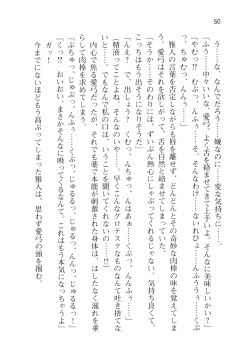 50
「う……な、なんでだろう……嫌なのに……変な気持ちに……」
「ふう……中々いいな、愛弓。よく舌を絡ませてきて上手いよ。そんなに美味しいかい？」
「やむっ？……ぷっ、んんっ……そ、そんなわけ……んふぅ……よ、余計なひとぉ……んふううぅ……ぷぶっ、ちゅむっ、んふう……」
雅人の言葉を否定しながらも唇を離せず、どんどんとその奇妙な肉棒の味を覚えてしまう。愛弓は我知らず、舌を自然と絡ませてしまっていた。
「そうか……そのわりには、ずいぶん熱心にしゃぶってくれるじゃない。気持ち良くて、こっちはもう出そうになりそうだ」
「え……で、出る……んんっ、くむうっ、ちゅっ、んはぁぁ……ぷっ、んんふぅ……」
（精液ってことよね……そんなのやめて……早くこんなグロテスクなものなんて吐き捨てなきゃ……。でも、なんで私の口は……いっぱい……欲しいの……）
内心で焦る愛弓だったが、それでも薬で本能が刺激された身体は、はしたなく涎れを垂らして肉棒を求めてしまう。
「ぷちゅっ、じゅるっ、んふぅ……ぷぶっ、じゅるるっ、んんっ、じゅるるっ！」
「くっ!?　おいおい、まさかそんなに吸ってくるなんて、これはもう本気になっちゃうよ」
ガッ！
今までにないほどもう高ぶってしまった雅人は、思わず愛弓の頭を掴む。